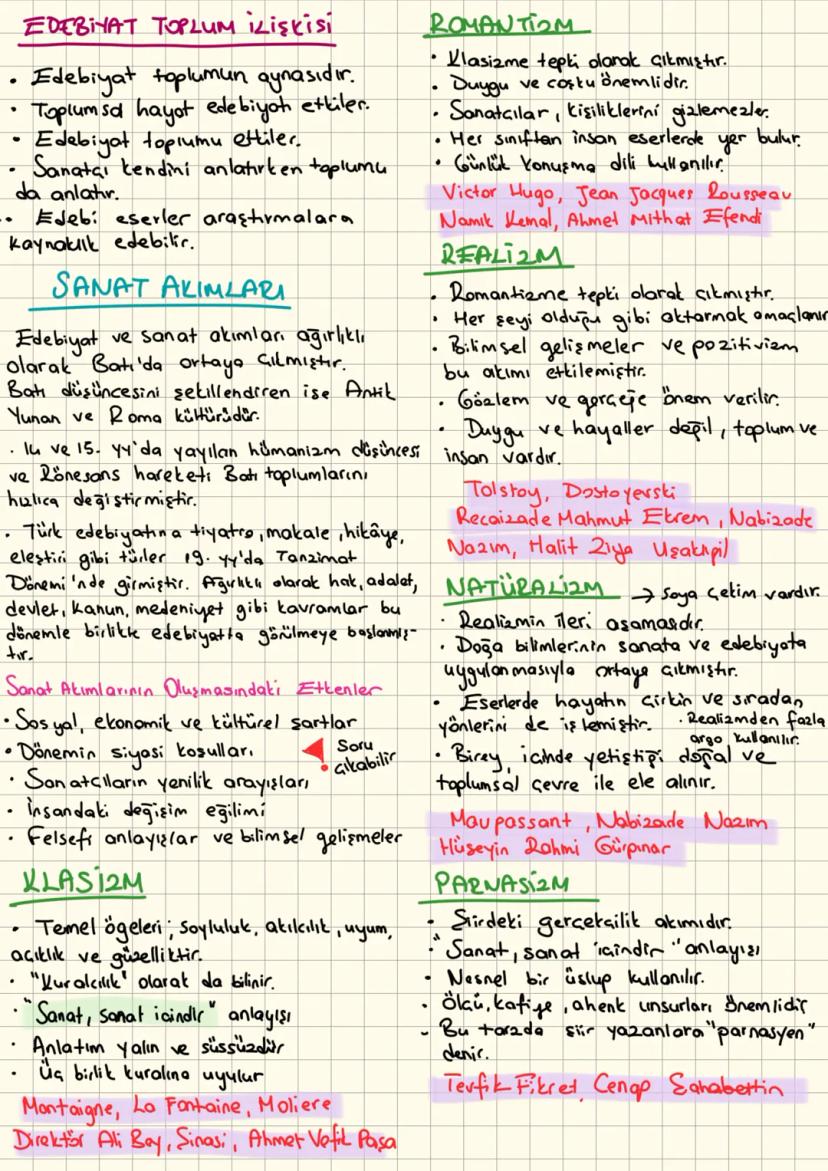 EDEBİYAT TOPLUM İLİŞKİSİ
• Edebiyat toplumun aynasıdır.
• Toplumsal hayat edebiyatı etkiler.
• Edebiyat toplumu etkiler.
• Sanatçı kendini anlatırken toplumu
da anlatır.
• Edebi eserler araştırmalara
kaynaklık edebilir.
SANAT AKIMLARI
Edebiyat ve sanat akımları ağırlıklı
olarak Batı'da ortaya çıkmıştır.
Batı düşüncesini şekillendiren ise Antik
Yunan ve Roma kültürüdür.
• 14 ve 15. yy'da yayılan hümanizm düşüncesi
ve Rönesans hareketi Batı toplumlarını
hızlıca değiştirmiştir.
• Türk edebiyatına tiyatro, makale, hikâye,
eleştiri gibi türler 19. yy'da Tanzimat
Dönemi'nde girmiştir. Ağırlıklı olarak hak, adalet,
devlet, kanun, medeniyet gibi kavramlar bu
dönemle birlikte edebiyatta görülmeye başlanmış-
tır.
Sanat Akımlarının Oluşmasındaki Etkenler
• Sosyal, ekonomik ve kültürel şartlar
• Dönemin siyasi koşulları
Soru
çıkabilir
• Sanatçıların yenilik arayışları
• İnsandaki değişim eğilimi
• Felsefi anlayışlar ve bilimsel gelişmeler
KLASİZM
• Temel ögeleri; soyluluk, akılcılık, uyum,
açıklık ve güzelliktir.
• "Kuralcılık" olarak da bilinir.
• "Sanat, sanat içindir" anlayışı
• Anlatım yalın ve süssüzdür
• Üç birlik kuralına uyulur
Montaigne, La Fontaine, Moliere
Direktör Ali Bey, Şinasi, Ahmet Vefik Paşa
ROMANTİZM
• Klasizme tepki olarak çıkmıştır.
• Duygu ve coşku önemlidir.
• Sanatçılar, kişiliklerini gizlemezler.
• Her sınıftan insan eserlerde yer bulur.
• Günlük konuşma dili kullanılır.
Victor Hugo, Jean Jacques Rousseau
Namık Kemal, Ahmet Mithat Efendi
REALİZM
• Romantizme tepki olarak çıkmıştır.
• Her şeyi olduğu gibi aktarmak amaçlanır
• Bilimsel gelişmeler ve pozitivizm
bu akımı etkilemiştir.
• Gözlem ve gerçeğe önem verilir.
• Duygu ve hayaller değil, toplum ve
insan vardır.
Tolstoy, Dostoyevski
Recaizade Mahmut Ekrem, Nabizade
Nazım, Halit Ziya Uşaklıgil
NATÜRALİZM → Soya çekim vardır.
• Realizmin ileri aşamasıdır.
• Doğa bilimlerinin sanata ve edebiyata
uygulanmasıyla ortaya çıkmıştır.
• Eserlerde hayatın çirkin ve sıradan
yönlerini de işlemiştir.
• Realizmden fazla
argo kullanılır.
• Birey, içinde yetiştiği doğal ve
toplumsal çevre ile ele alınır.
Maupassant, Nabizade Nazım
Hüseyin Rahmi Gürpınar
PARNASİZM
• Şiirdeki gerçekçilik akımıdır.
• "Sanat, sanat içindir" anlayışı
• Nesnel bir üslup kullanılır.
• Ölçü, kafiye, ahenk unsurları önemlidir
- Bu tarzda şiir yazanlara "parnasyen"
denir.
Tevfik Fikret, Cenap Şahabettin